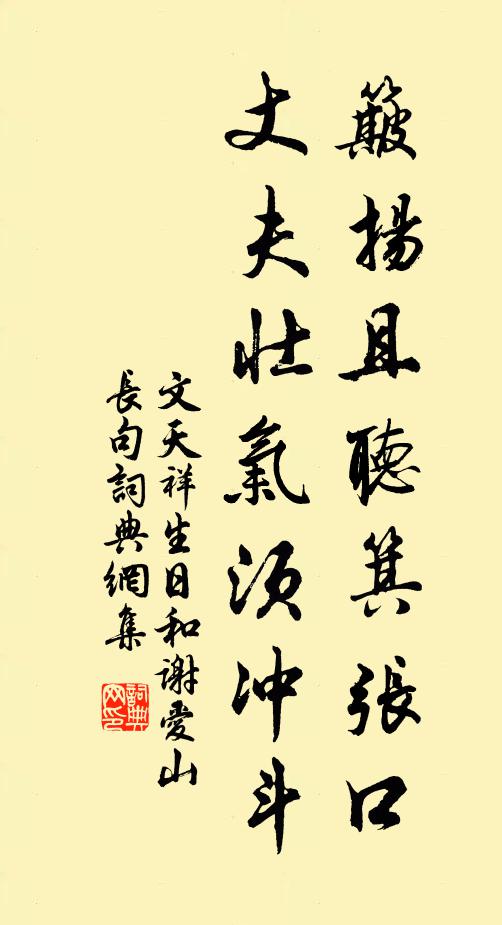 簸揚且聽箕張口
丈夫壯氣須沖斗
文天祥生日和謝愛山
長句詞典網集
詞典网印